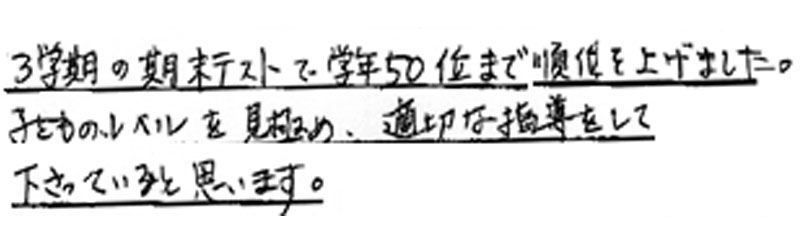 3学期の期末テストで学年50位まで順位を上げました。
子どものレベルを見極め、適切な指導をして
下さっていると思います。